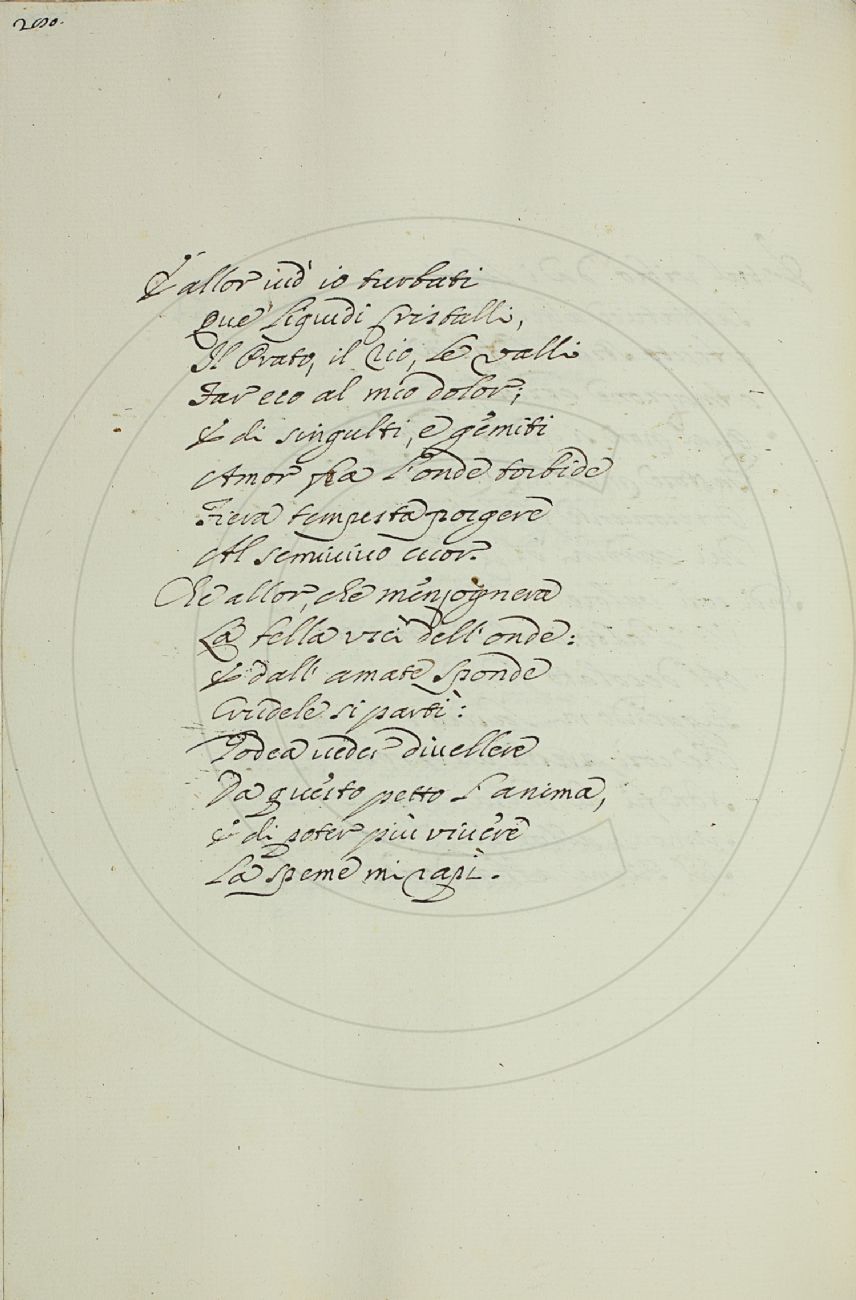 200.
E allor vid' io turbati
Que' liquidi cristalli,
Il Prato, il rio, le valli
Far eco al mio dolor;
E di singulti, e gemiti
Amor fra l'onde torbide
Fiera tempesta porgere
Al semivivo cuor.
Che allor, che menzognera
La fella uscì dell' onde:
E dall' amate sponde
Crudele si partì:
Potea veder divellere
Da questo petto l'anima,
E di poter più vivere
La speme mi rapì.